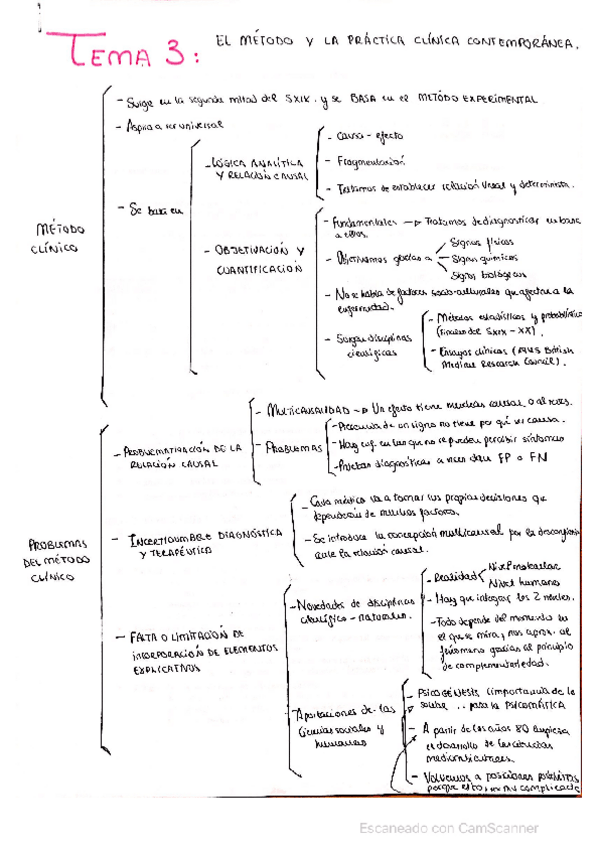 TEMA 3: EL MÉTODO Y LA PRÁCTICA CLÍNICA CONTEMPORÁNEA.
MÉTODO
CLÍNICO
- Surge en la segunda mitad del SXIX. y se BASA en el MÉTODO EXPERIMENTAL
- Aspira a ser universal
- Se basa en
- LÓGICA ANALÍTICA
Y RELACIÓN CAUSAL
- Causa - efecto
- Fragmentación
- Tratamos de establecer relación lineal y determinista.
- OBJETIVACIÓN Y
CUANTIFICACIÓN
- Fundamentales → Tratamos de diagnosticar en base
a ellos.
- Objetivamos gracias a
Signos físicos
Signos químicos
Signos biológicos
- No se habla de factores socio-culturales que afectan a la
enfermedad.
- Surgen disciplinas
científicas
- Métodos estadísticos y
(finales del SXIX - XX).
- Ensayos clínicos ( British
Medical Research Council).
PROBLEMAS
DEL MÉTODO
CLÍNICO
- PROBLEMATIZACIÓN DE LA
RELACIÓN CAUSAL
- MULTICAUSALIDAD → Un efecto tiene muchas causas o al revés.
- PROBLEMAS
- Presencia de un signo no tiene por qué ser causa.
- Hay enf. en las que no se pueden percibir síntomas
- Pruebas diagnósticas a veces dan FP o FN
- INCERTIDUMBRE DIAGNÓSTICA
Y TERAPÉUTICA
- Cada médico va a tomar sus propias decisiones que
dependerán de muchos factores.
- Se introduce la concepción multicausal por la
ante la relación causal.
- FALTA O LIMITACIÓN DE
INCORPORACIÓN DE ELEMENTOS
EXPLICATIVOS
- Novedades de disciplinas
científico - naturales.
- Realidad
Nivel molecular
Nivel humano
- Hay que integrar los 2 niveles.
- Todo depende del momento en
el que se mira, y nos aprox. al
fenómeno gracias al principio
de complementariedad.
- Aportaciones de las
Ciencias sociales y
humanas
- PSICOGÉNESIS (importancia de lo
para la PSICOMÁTICA
- A partir de los años 80 empieza
el desarrollo de las ciencias
- Volvemos a posiciones positivistas
porque esto es muy complicado
Escaneado con CamScanner